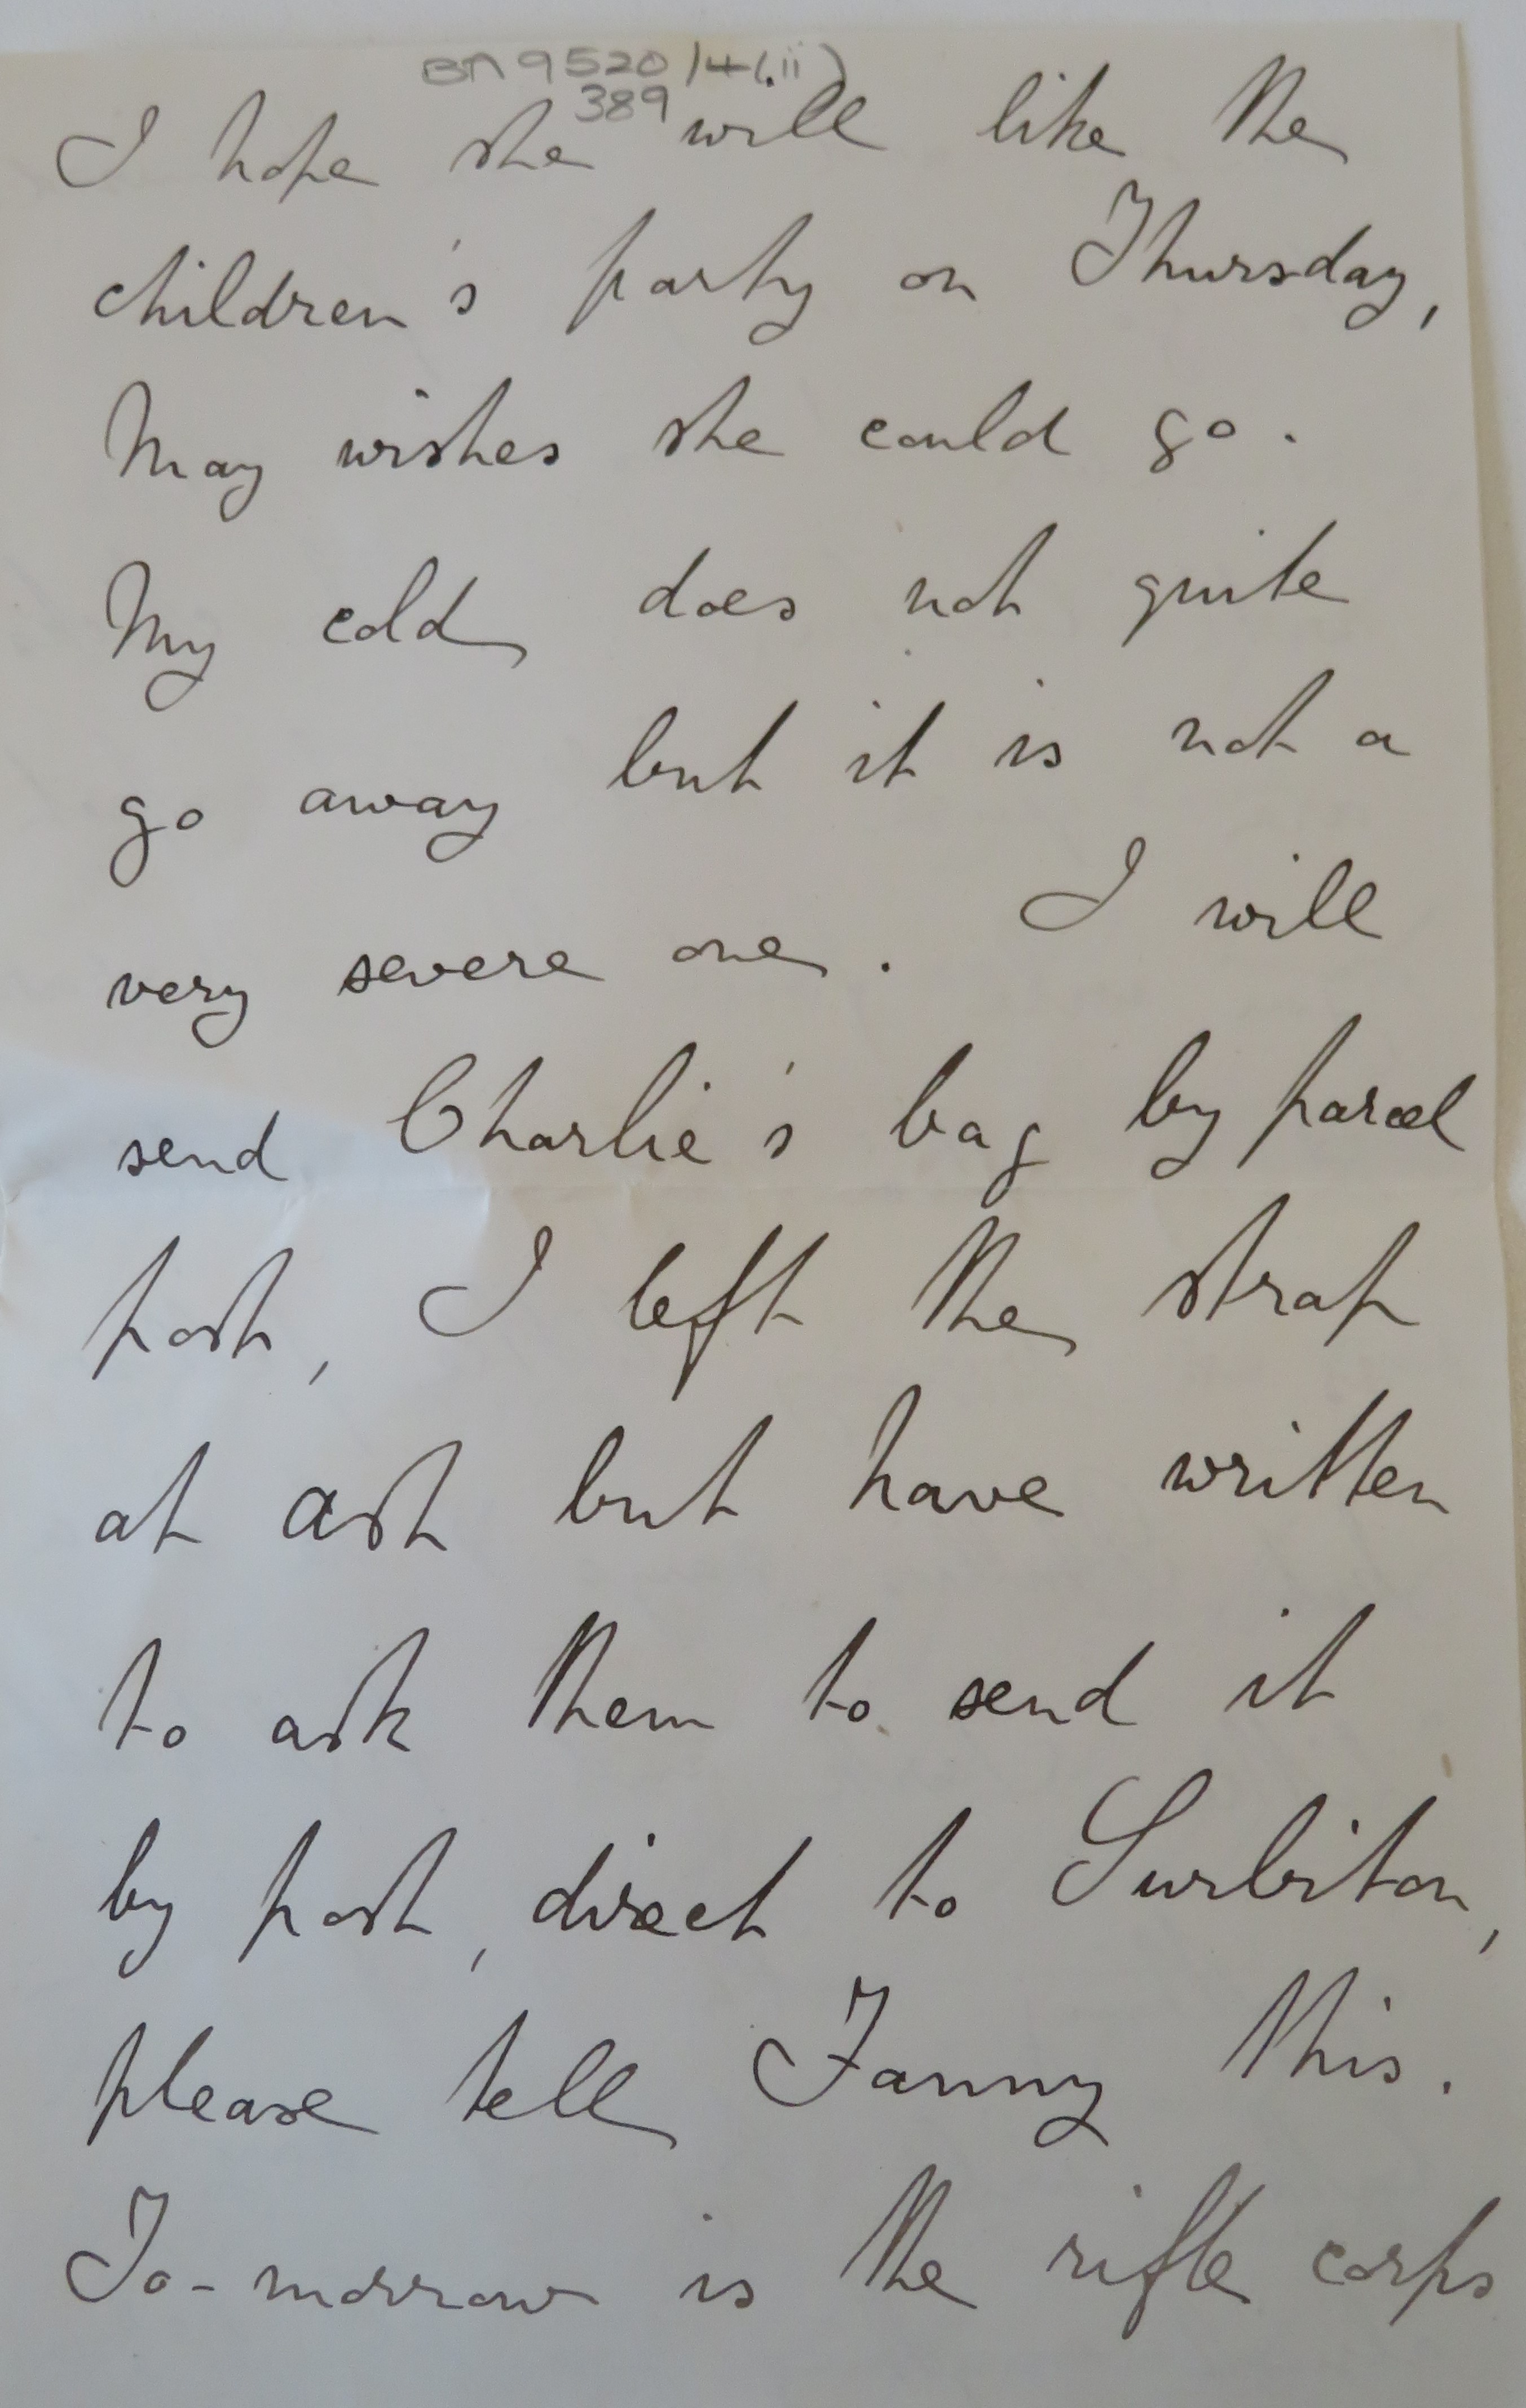 BA 9520/4(.ii)
389
I hope she will like the
children's party on Thursday,
May wishes she could go.
My cold does not quite
go away but it is not a
very severe one. I will
send Charlie's bag by parcel
post, I left the strap
at Ash but have written
to ask them to send it
by post, direct to Surbiton,
please tell Fanny this.
To-morrow is the rifle corps